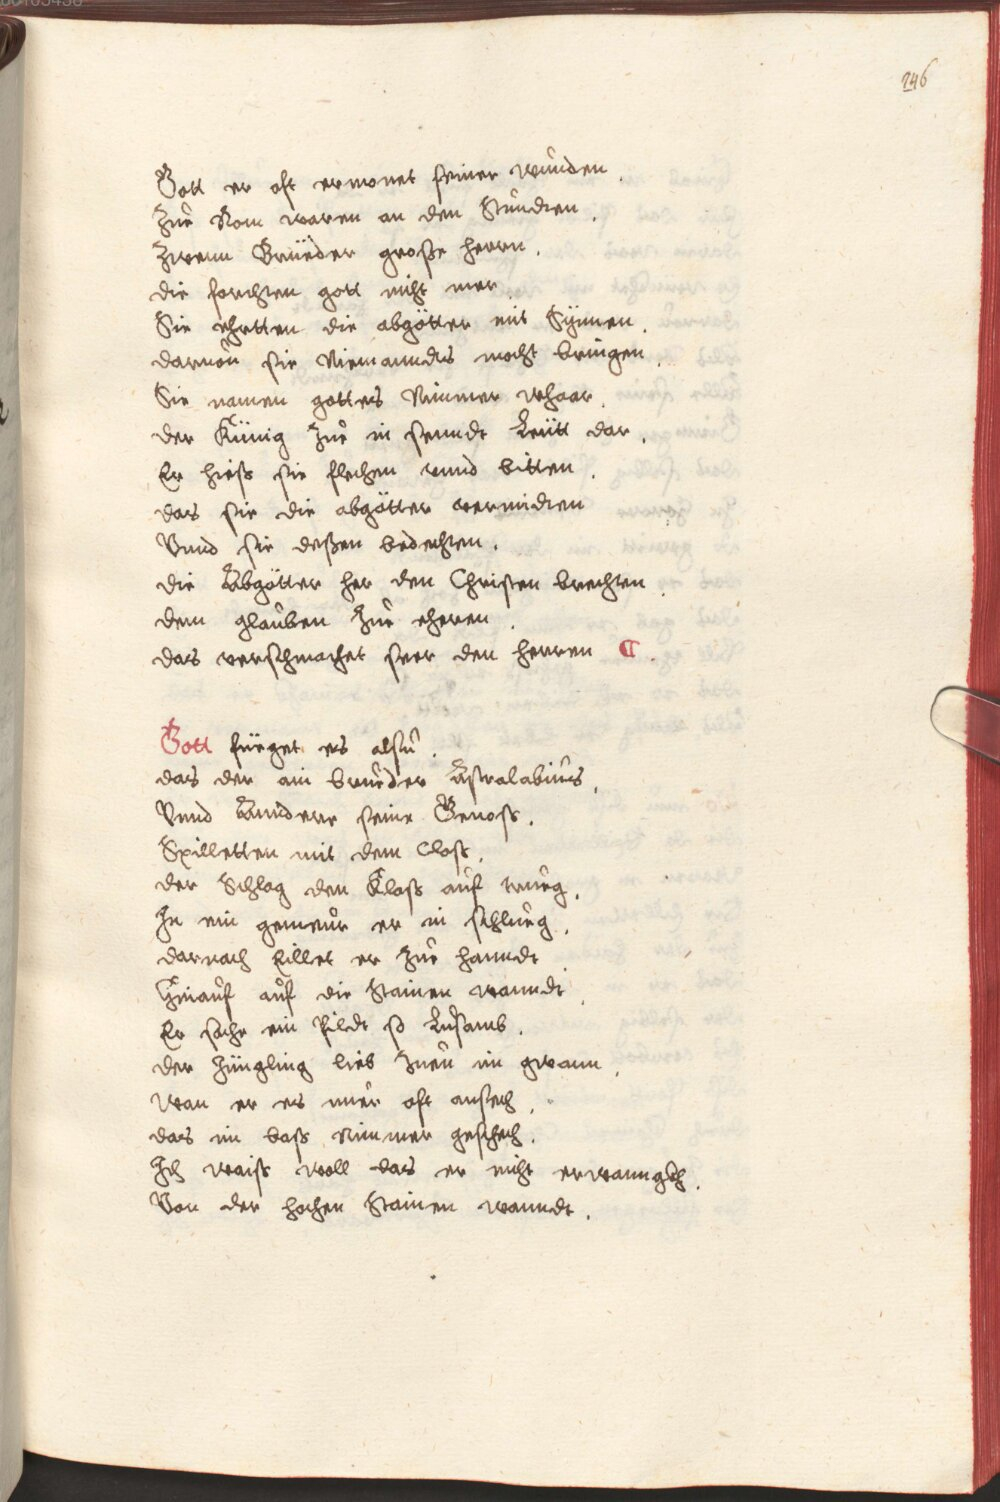 246
Gott er oft ermonet seiner wunden.
Zue Rom waren an den Stundten.
Zwenn Brüeder große herrn.
die forchten gott nicht mer.
Sie ehretten die abgötter mit Synnen.
daruon sie Niemanndts mocht bringen.
Sie namen gottes Nimmer whaar.
der Künig Zue in sanndt Leütt dar.
Er hieß sie flechen vnnd bitten.
das sie die abgötter vermidten
Vnnd sie deßen bedechten.
die Abgötter her den Christen brechten.
dem glauben Zue eheren.
das verschmachet seer den herren ¶.
Gott füeget es alsu.
das der ain brueder Astralabius.
Vnnd Annderr seine Genoss.
Spilletten mit dem Closs.
der Schlag den Kloss auf trueg.
In ein gemeur er in schlueg.
darnach Eillet er Zue hanndt.
Hinauf auf die Stainen wanndt.
Er sache ein Pildt so Lussamb.
der Jüngling lieb Zueu im gwann.
wan er es nuer oft ansech.
das im bass Nimmer geschech.
Ich waiss woll das er nicht erwanngkh.
Von der hochen Stainen wanndt.